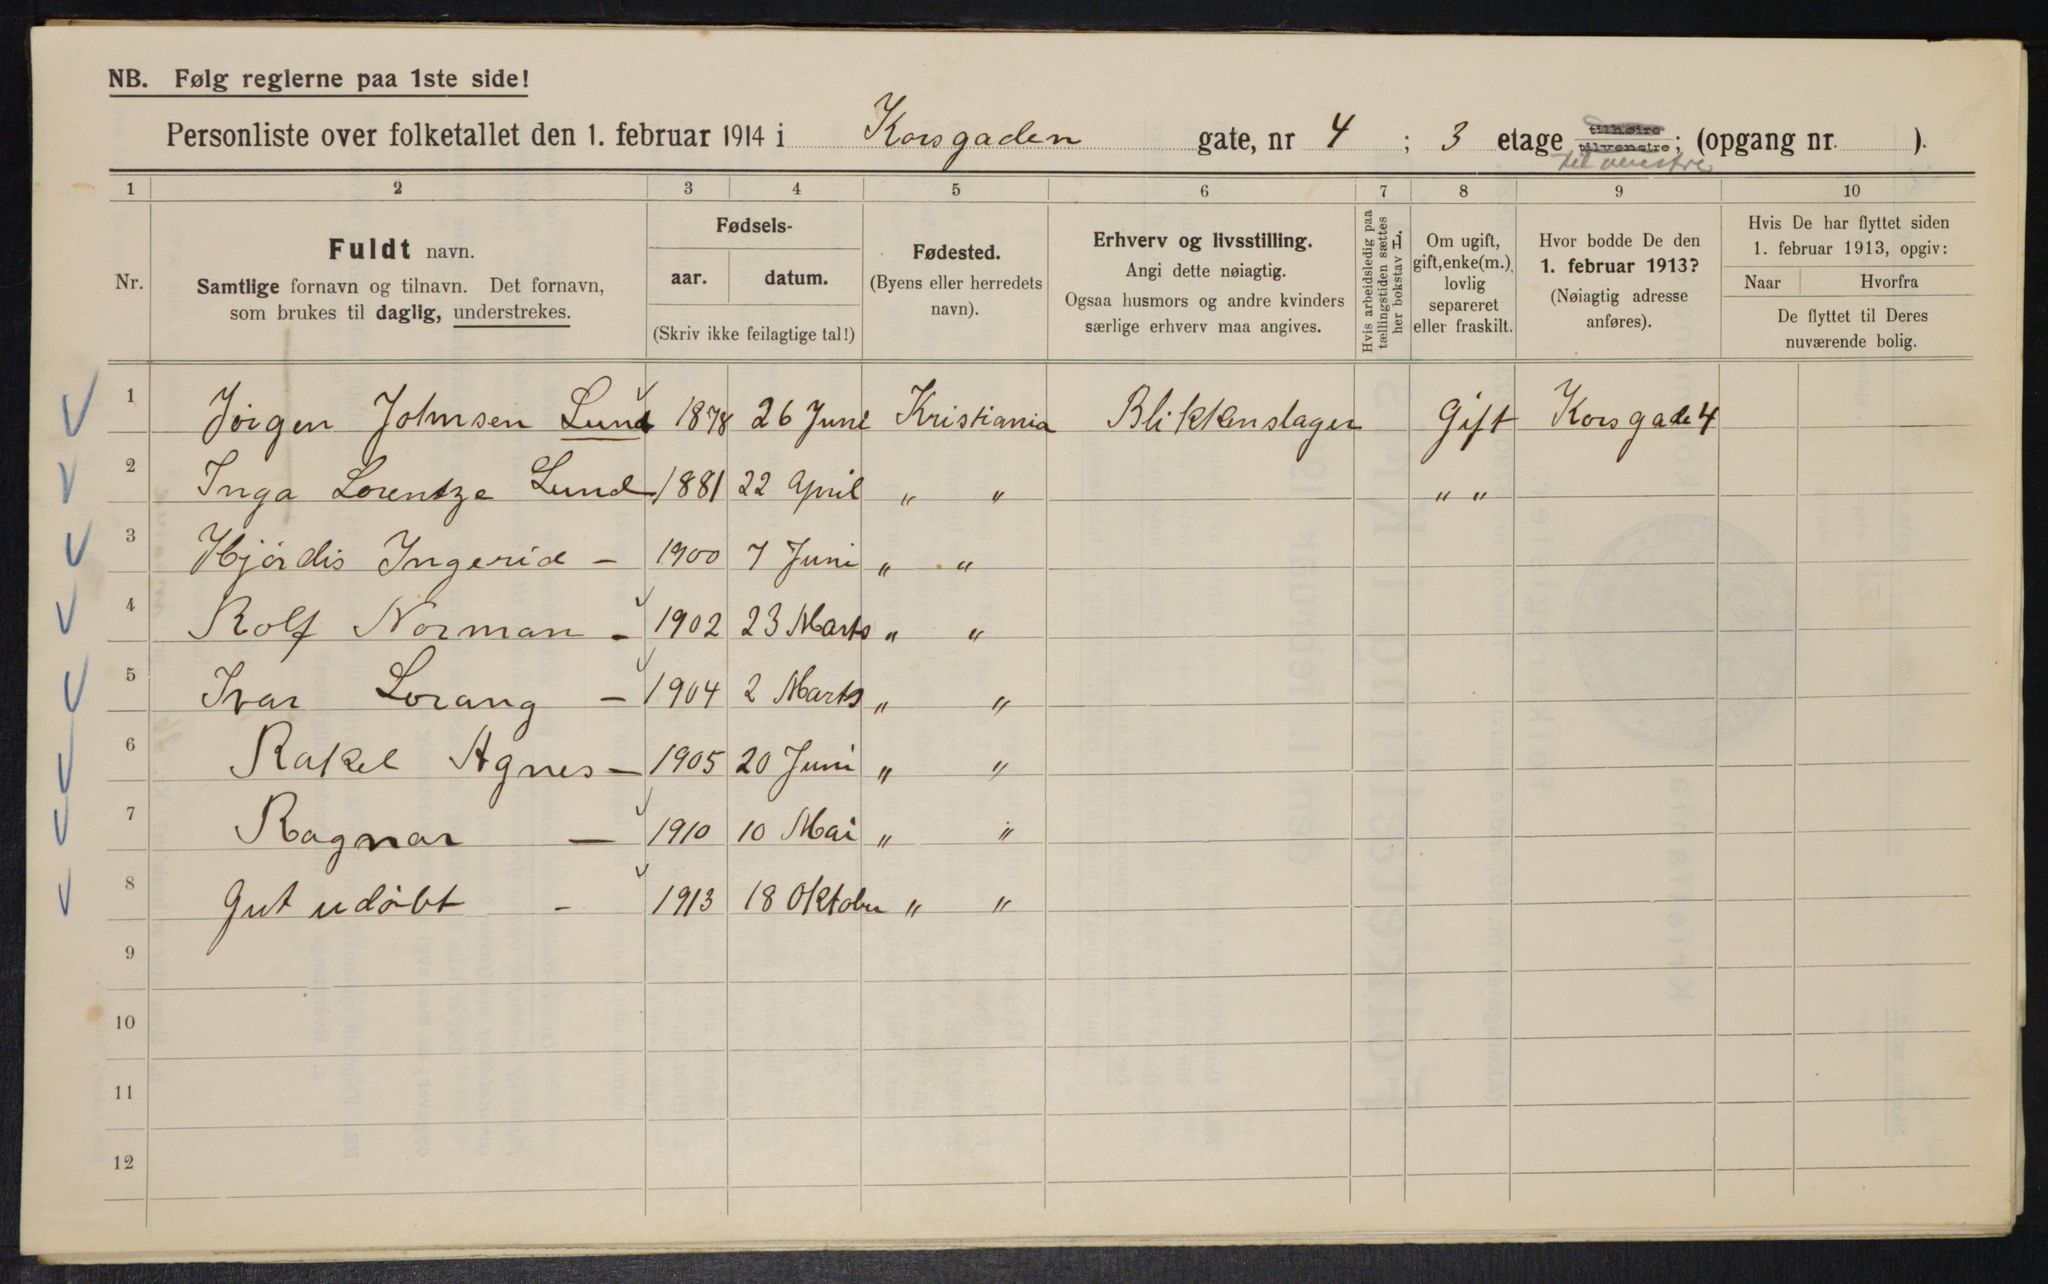 NB. Følg reglerne paa 1ste side!
Personliste over folketallet den 1. februar 1914 i Korsgaden gate, nr 4 ; 3 etage tilhøire tilvenstre; (opgang nr. ).
til venstre
1 2 3 4 5 6 7 8 9 10
Nr.
Fuldt navn.
Samtlige fornavn og tilnavn. Det fornavn,
som brukes til daglig, understrekes.
Fødsels-
aar. datum.
(Skriv ikke feilagtige tal!)
Fødested.
(Byens eller herredets
navn).
Erhverv og livsstilling.
Angi dette nøiagtig.
Ogsaa husmors og andre kvinders
særlige erhverv maa angives.
Hvis arbeidsledig paa
tællingstiden sættes
her bokstav L.
Om ugift,
gift, enke(m.),
lovlig
separeret
eller fraskilt.
Hvor bodde De den
1. februar 1913?
(Nøiagtig adresse
anføres).
Hvis De har flyttet siden
1. februar 1913, opgiv:
Naar Hvorfra
De flyttet til Deres
nuværende bolig.
1 Jörgen Johnsen Lund 1878 26 Juni Kristiania Blikkenslager Gift Korsgade 4
2 Inga Lorentze Lund 1881 22 April " " " "
3 Hjördis Ingerid – 1900 7 Juni " "
4 Rolf Norman – 1902 23 Marts " "
5 Ivar Lorang – 1904 2 Marts " "
6 Rakel Agnes – 1905 20 Juni " "
7 Ragnar – 1910 10 Mai " "
8 Gut udöbt – 1913 18 Oktober " "
9
10
11
12